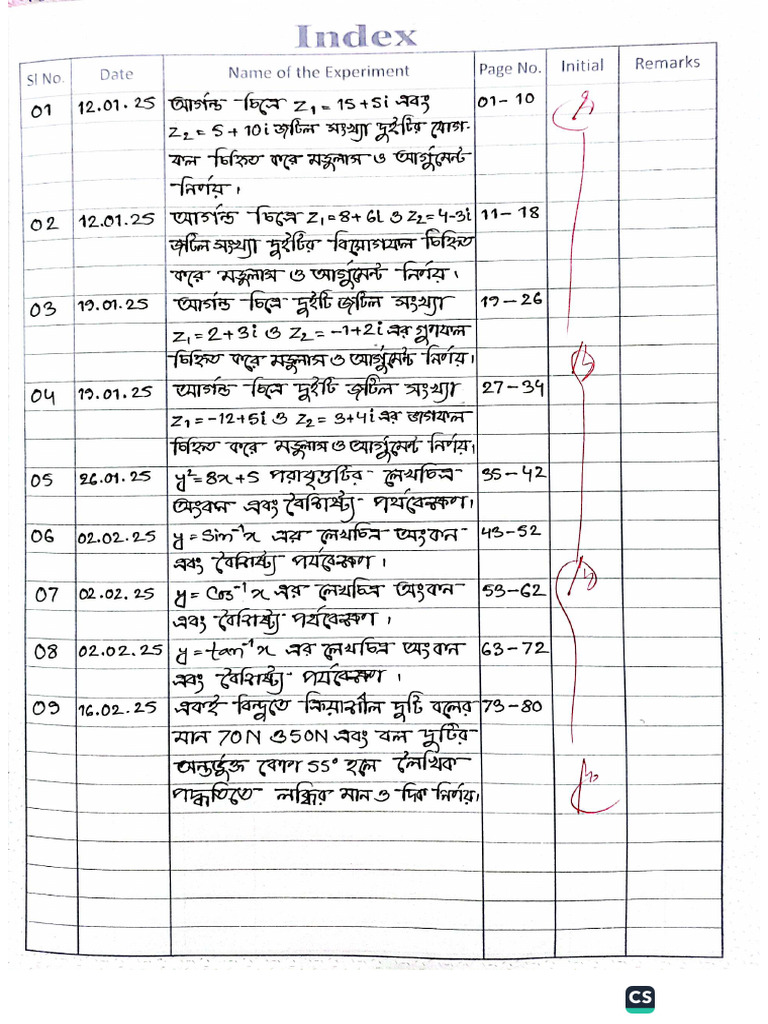 Index
Sl No. Date Name of the Experiment Page No. Initial Remarks
01 12.01.25 আর্গন্ড চিত্রে Z₁ = 15+5i এবং 01-10
Z₂ = 5+10i জটিল সংখ্যা দুইটির যোগ-
ফল চিহ্নিত করে মডুলাস ও আর্গুমেন্ট
নির্ণয়।
02 12.01.25 আর্গন্ড চিত্রে Z₁=8+6i ও Z₂=4-3i 11-18
জটিল সংখ্যা দুইটির বিয়োগফল চিহ্নিত
করে মডুলাস ও আর্গুমেন্ট নির্ণয়।
03 19.01.25 আর্গন্ড চিত্রে দুইটি জটিল সংখ্যা 19-26
Z₁=2+3i ও Z₂=-1+2i এর গুণফল
চিহ্নিত করে মডুলাস ও আর্গুমেন্ট নির্ণয়।
04 19.01.25 আর্গন্ড চিত্রে দুইটি জটিল সংখ্যা 27-34
Z₁=-12+5i ও Z₂=3+4i এর ভাগফল
চিহ্নিত করে মডুলাস ও আর্গুমেন্ট নির্ণয়।
05 26.01.25 y²=8x+5 পরাবৃত্তটির লেখচিত্র 35-42
অংকন এবং বৈশিষ্ট্য পর্যবেক্ষণ।
06 02.02.25 y=Sin⁻¹x এর লেখচিত্র অংকন 43-52
এবং বৈশিষ্ট্য পর্যবেক্ষণ।
07 02.02.25 y=Cos⁻¹x এর লেখচিত্র অংকন 53-62
এবং বৈশিষ্ট্য পর্যবেক্ষণ।
08 02.02.25 y=tan⁻¹x এর লেখচিত্র অংকন 63-72
এবং বৈশিষ্ট্য পর্যবেক্ষণ।
09 16.02.25 একই বিন্দুতে ক্রিয়াশীল দুটি বলের 73-80
মান 70N ও 50N এবং বল দুটির
অন্তর্ভুক্ত কোণ 55° হলে লৈখিক
পদ্ধতিতে লব্ধির মান ও দিক নির্ণয়।
CS